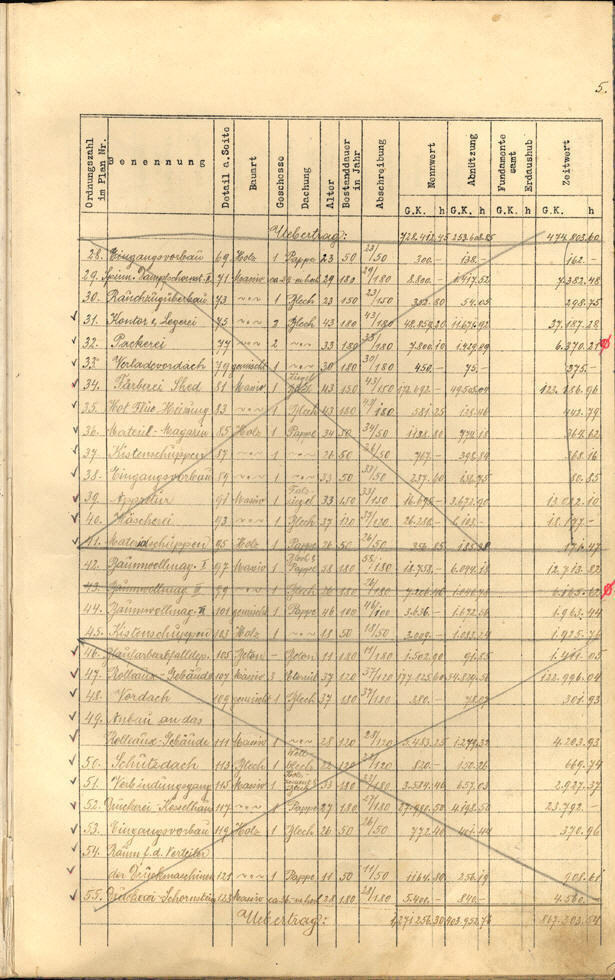 5.
Ordnungszahl im Plan Nr. Benennung Detail a.Seite Bauart Geschosse Dachung Alter Bestanddauer in Jahr Abschreibung Nennwert Abnützung Fundamente samt Erdaushub Zeitwert
G.K. h G.K. h G.K. h G.K. h
Uebertrag: 728.412.45 253.608.85 474.803.60
28. Eingangsvorbau 69 Holz 1 Pappe 23 50 23/50 300.- 138.- 162.-
29. 71 Massiv 29 180 29/180 8.800.- 1.417.52 7.382.48
30. Rauchzugüberbau 73 〃 1 Blech 23 150 23/150 352.80 54.05 298.75
31. Kontor u. Legerei 75 〃 2 Blech 43 180 43/180 48.858.20 11.670.92 37.187.28
32. Packerei 77 〃 2 〃 33 180 33/180 7.800.10 1.429.89 6.370.21
33. Verladvordach 79 gemischt 1 〃 30 180 30/180 450.- 75.- 375.-
34. Färberei Shed 81 Massiv 1 43 150 43/150 172.692.- 122.186.96
35. Hot Flue Heizung 83 〃 1 Blech 43 180 43/180 581.25 138.46 442.79
36. Material-Magazin 85 Holz 1 Pappe 34 50 34/50 1138.80 774.18 364.62
37. Kistenschuppen 87 〃 1 〃 26 50 26/50 767.- 398.84 368.16
38. Eingangsvorbau 89 〃 1 〃 33 50 33/50 237.60 156.75 80.85
39. Appretur 91 Massiv 1 33 150 33/150 16.695.- 3.672.90 13.022.10
40. Wäscherei 93 〃 1 Blech 37 120 37/120 26.282.- 18.177.-
41. Materialschuppen 95 Holz 1 Pappe 26 50 26/50 356.85 185.38 171.47
42. Baumwollmag. I 97 Massiv 1 Pappe 58 180 58/180 18.758.- 6.044.18 12.713.82
43. Baumwollmag. II 99 〃 1 Blech 26 180 26/180 6.165.62
44. Baumwollmag. III 101 gemischt 1 Pappe 46 100 46/100 3.636.- 1.672.56 1.963.44
45. Kistenschuppen 103 Holz 1 〃 18 50 18/50 2.009.- 1.083.24 1.925.76
46. 105 Beton - Beton 11 180 11/180 1.502.90 91.85 1.411.05
47. Rouleaux-Gebäude 107 Massiv 3 Eternit 37 120 37/120 177.825.60 54.829.56 122.996.04
48. Vordach 109 gemischt 1 Blech 37 180 37/180 380.- 78.07 301.93
49. Anbau an das
Rouleaux-Gebäude 111 Massiv 1 〃 28 120 28/120 5.483.25 1.279.32 4.203.93
50. Schutzdach 113 Blech 1 Wellblech 22 120 22/120 820.- 150.26 669.74
51. Verbindungsgang 115 Massiv 1 33 180 33/180 3.584.40 657.03 2.927.37
52. Druckerei Kesselhaus 117 〃 1 Pappe 27 180 27/180 27.990.50 4.198.50 23.792.-
53. Eingangsvorbau 119 Holz 1 Blech 26 50 26/50 772.40 401.44 370.96
54. Raum f. d. Verteiler
der Druckmaschinen 121 〃 1 Pappe 11 50 11/50 1164.80 256.19 908.61
55. Druckerei-Schornstein 123 Massiv 28 180 28/180 5.400.- 840.- 4.560.-
Uebertrag: 1,271.256.30 403.952.76 867.303.54